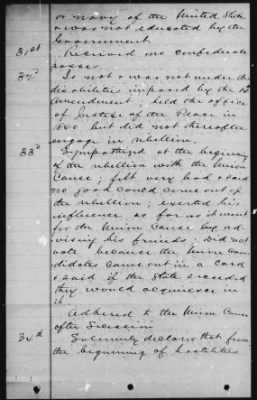 or navy of the United States
& was not educated by the
Government
31st Received no confederate
passes.
32d Is not & was not under the
disabilities imposed by the 14
Amendment; held the office
of Justice of the Peace in
1840 but did not thereafter
engage in rebellion.
33d Sympathized at the beginning
of the rebellion with the Union
Cause; felt very bad & said
no good could come out of
the rebellion; exerted his
influence as far as it went
for the Union Cause by ad-
vising his friends; did not
vote because the Union Can-
didates came out in a card
& said if the State seceded
they would acquiesce in
it.
Adhered to the Union Cause
after Secession
34th Solemnly declares that from
the beginning of hostilities